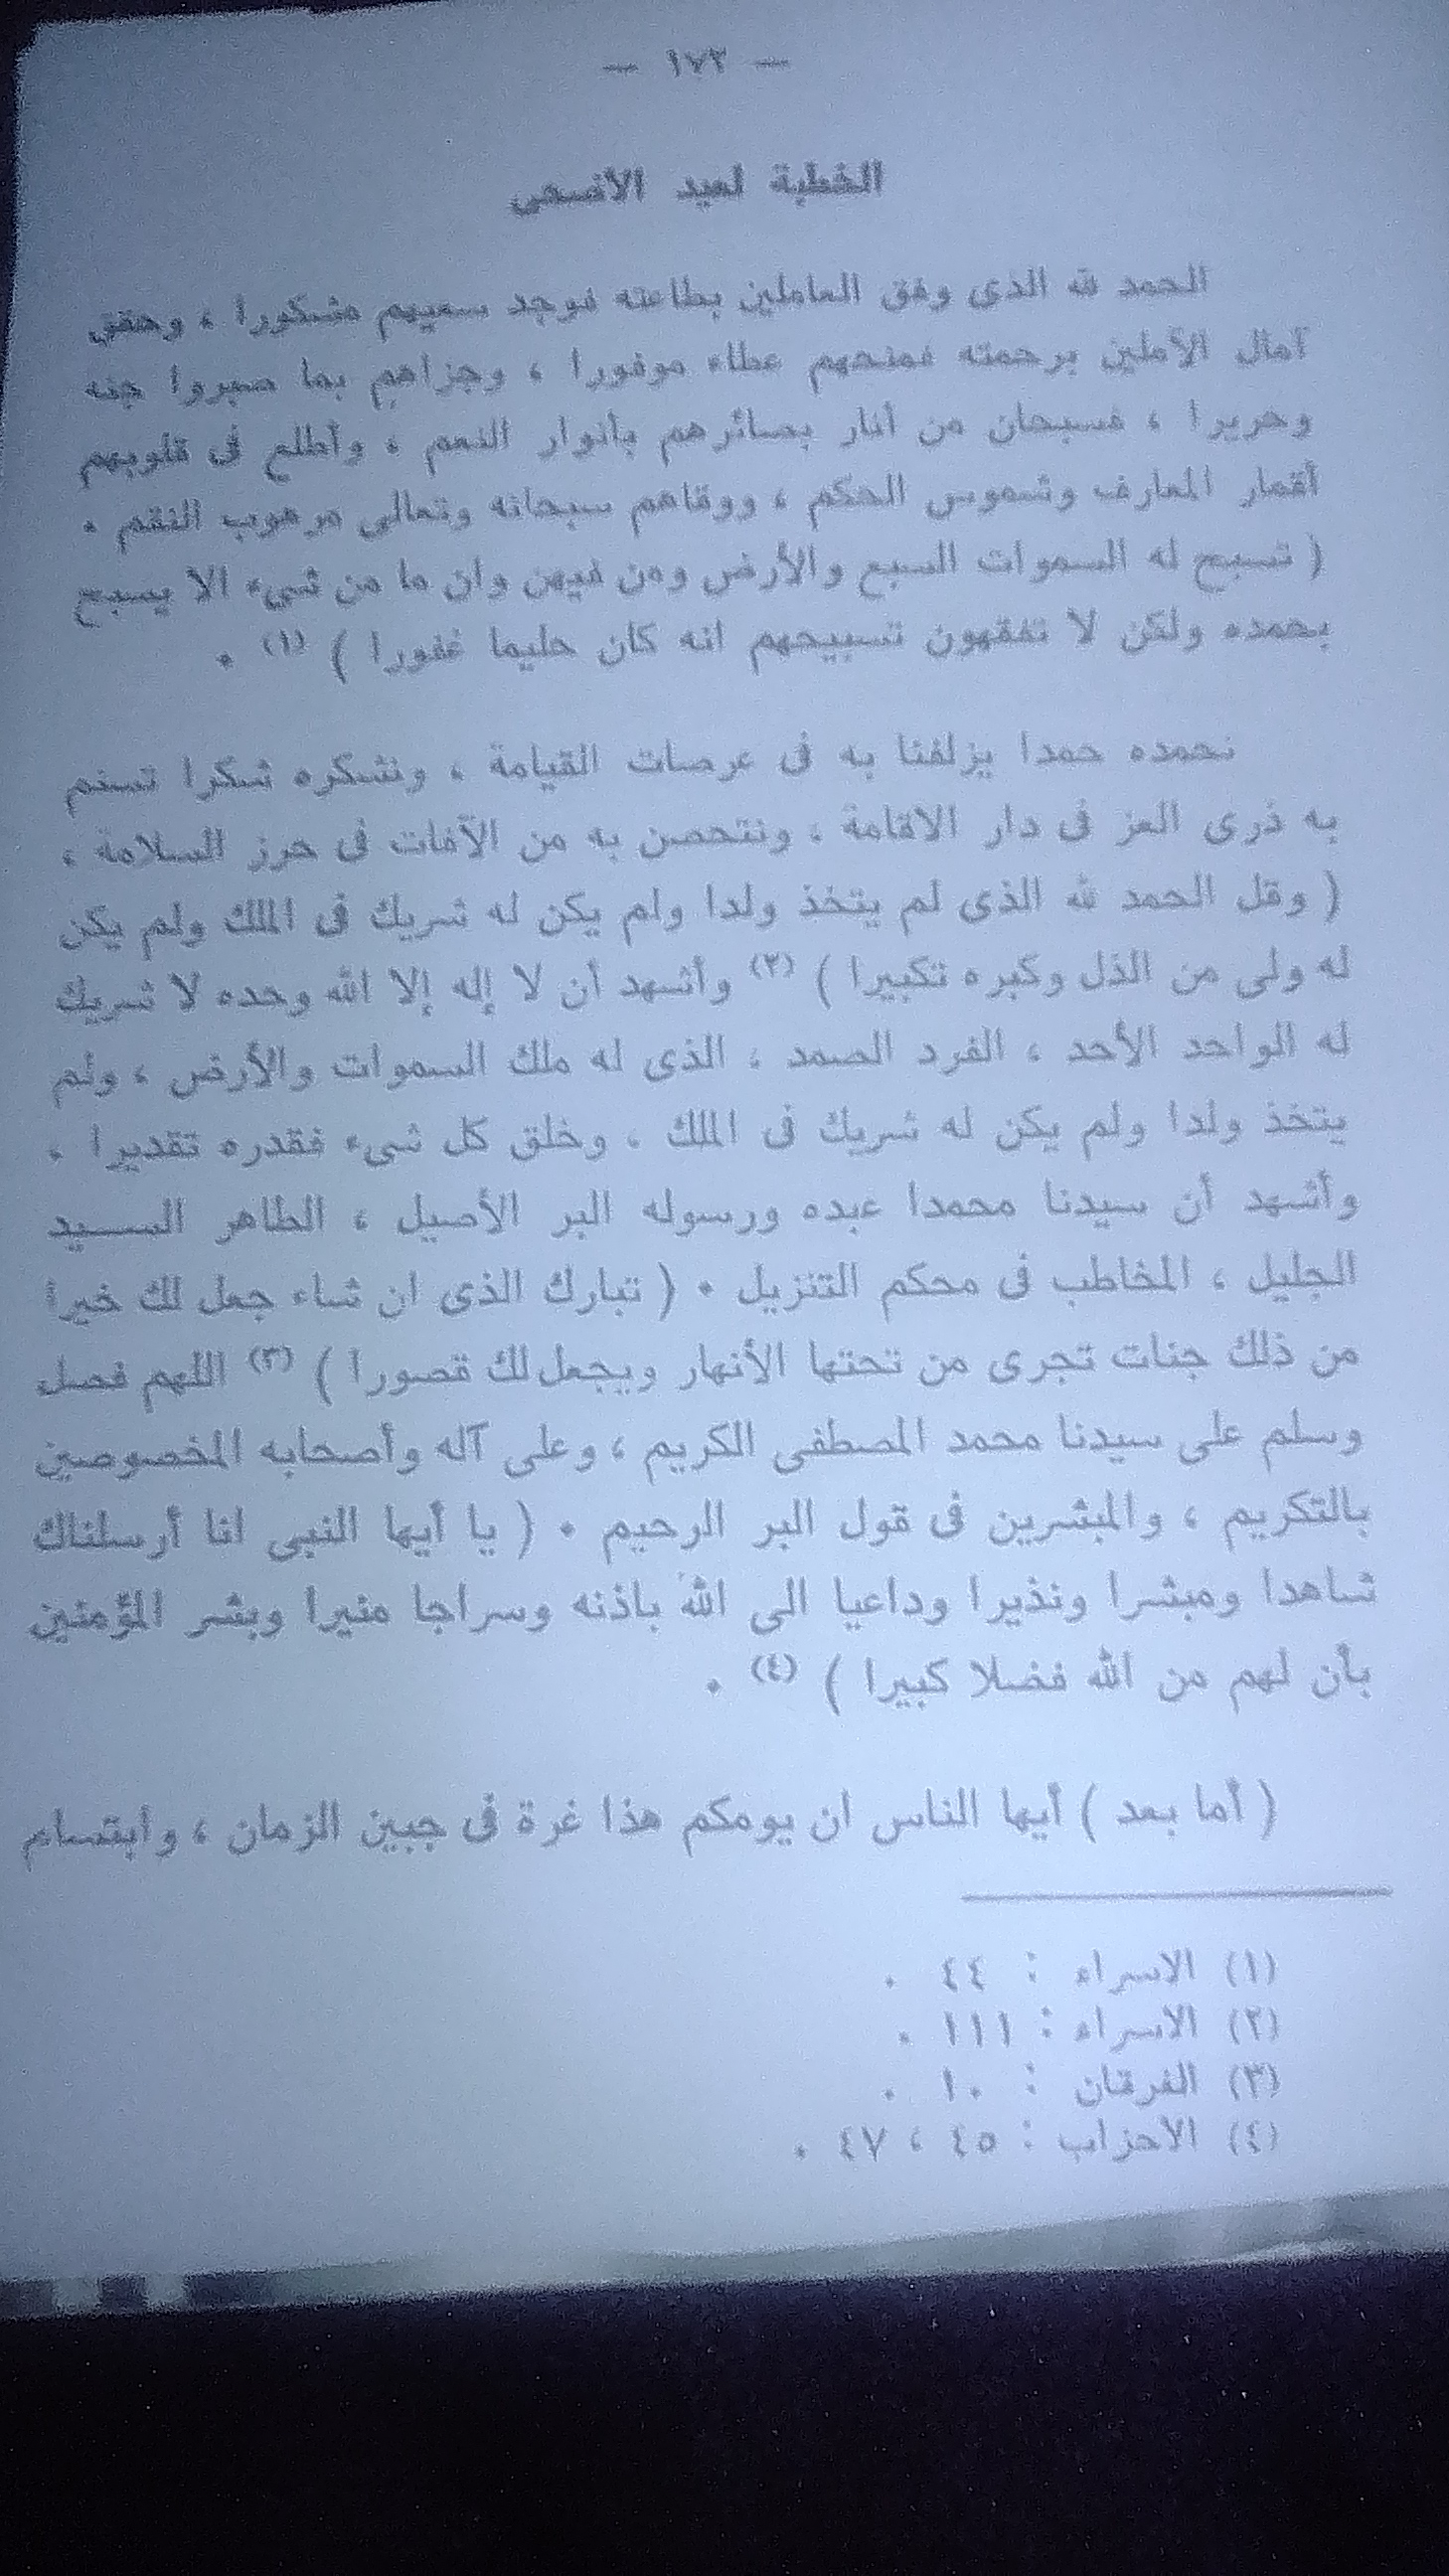 — ١٧٢ —
الخطبة لعيد الأضحى
الحمد لله الذى وفق العاملين بطاعته فوجد سعيهم مشكورا ، وحقق
آمال الآملين برحمته فمنحهم عطاء موفورا ، وجزاهم بما صبروا جنه
وحريرا ، فسبحان من أنار بصائرهم بأنوار النعم ، وأطلع فى قلوبهم
أقمار المعارف وشموس الحكم ، ووقاهم سبحانه وتعالى مرهوب النقم .
( تسبح له السموات السبع والأرض ومن فيهن وان ما من شىء الا يسبح
بحمده ولكن لا تفقهون تسبيحهم انه كان حليما غفورا ) (١) .
نحمده حمدا يزلفنا به فى عرصات القيامة ، ونشكره شكرا تسنم
به ذرى العز فى دار الاقامة ، ونتحصن به من الآفات فى حرز السلامة ،
( وقل الحمد لله الذى لم يتخذ ولدا ولم يكن له شريك فى الملك ولم يكن
له ولى من الذل وكبره تكبيرا ) (٢) وأشهد أن لا إله إلا الله وحده لا شريك
له الواحد الأحد ، الفرد الصمد ، الذى له ملك السموات والأرض ، ولم
يتخذ ولدا ولم يكن له شريك فى الملك ، وخلق كل شىء فقدره تقديرا ،
وأشهد أن سيدنا محمدا عبده ورسوله البر الأصيل ، الطاهر الســـيد
الجليل ، المخاطب فى محكم التنزيل . ( تبارك الذى ان شاء جعل لك خيرا
من ذلك جنات تجرى من تحتها الأنهار ويجعل لك قصورا ) (٣) اللهم فصل
وسلم على سيدنا محمد المصطفى الكريم ، وعلى آله وأصحابه المخصوصين
بالتكريم ، والمبشرين فى قول البر الرحيم . ( يا أيها النبى انا أرسلناك
شاهدا ومبشرا ونذيرا وداعيا الى الله باذنه وسراجا منيرا وبشر المؤمنين
بأن لهم من الله فضلا كبيرا ) (٤) .
( أما بعد ) أيها الناس ان يومكم هذا غرة فى جبين الزمان ، وابتسام
(١) الاسراء : ٤٤ .
(٢) الاسراء : ١١١ .
(٣) الفرقان : ١٠ .
(٤) الاحزاب : ٤٥ ، ٤٧ .